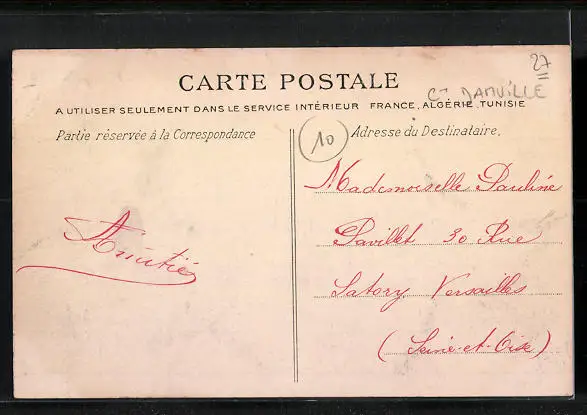 27
CARTE POSTALE
Cn DAMVILLE
A UTILISER SEULEMENT DANS LE SERVICE INTÉRIEUR FRANCE, ALGÉRIE, TUNISIE
Partie réservée à la Correspondance
10
Adresse du Destinataire.
Amitié
Mademoiselle Pauline
Pavillet 30 Rue
Satory Versailles
(Seine-et-Oise)